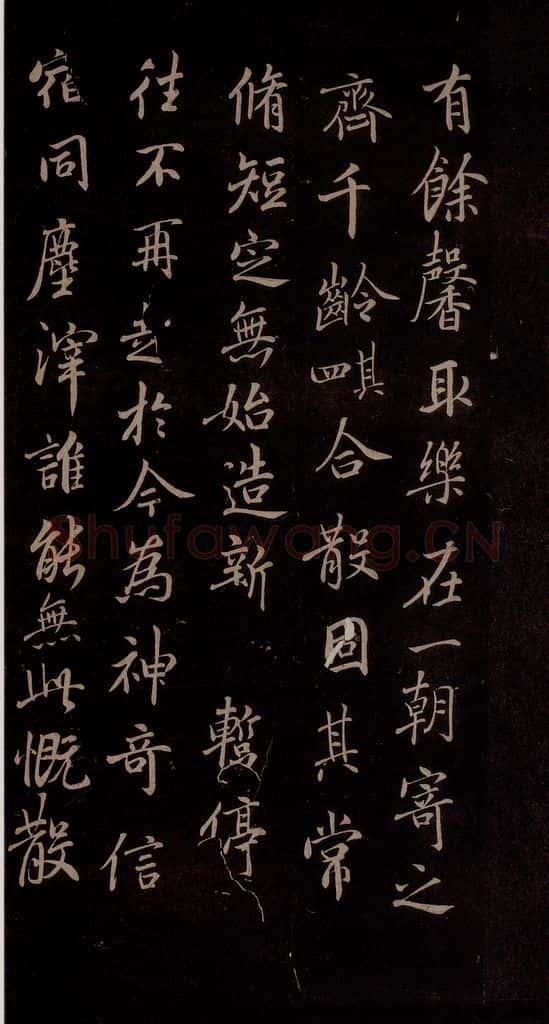 有餘馨取樂在一朝寄之
齊千齡其四合散固其常
脩短定無始造新 暫停
往不再起於今為神奇信
宿同塵滓誰能無此慨散
Shufawang.CN